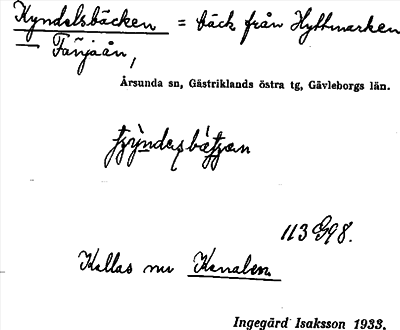 Kyndelsbäcken = bäck från Hyttmarken
— Fänjaån,
Årsunda sn, Gästriklands östra tg, Gävleborgs län.
113 G98.
Kallas nu Kanalen
Ingegärd Isaksson 1933.